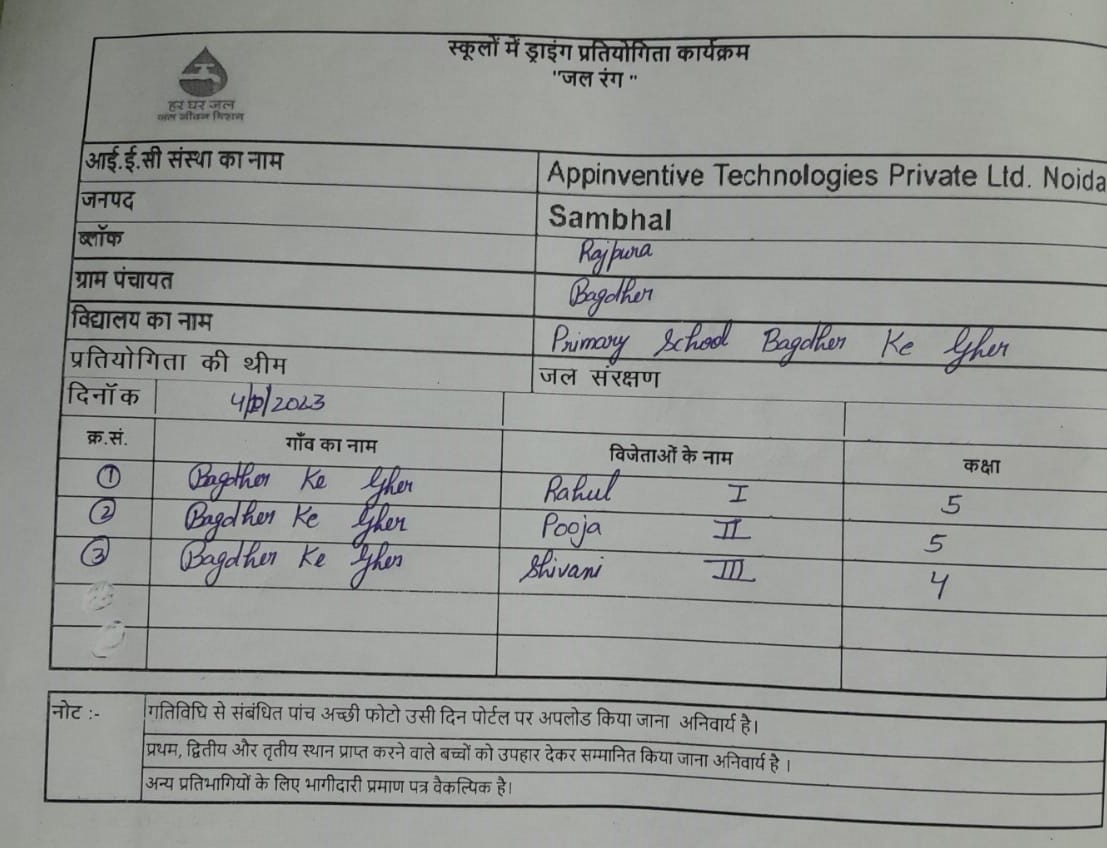 स्कूलों में ड्राइंग प्रतियोगिता कार्यक्रम
"जल रंग "
हर घर जल
जल जीवन मिशन
आई.ई.सी संस्था का नाम Appinventive Technologies Private Ltd. Noida
जनपद Sambhal
ब्लॉक Rajpura
ग्राम पंचायत Bagdher
विद्यालय का नाम Primary School Bagdher Ke Gher
प्रतियोगिता की थीम जल संरक्षण
दिनॉक 4/10/2023
क्र.सं. गाँव का नाम विजेताओं के नाम कक्षा
① Bagdher Ke Gher Rahul I 5
② Bagdher Ke Gher Pooja II 5
③ Bagdher Ke Gher Shivani III 4
नोट :- गतिविधि से संबंधित पांच अच्छी फोटो उसी दिन पोर्टल पर अपलोड किया जाना अनिवार्य है।
प्रथम, द्वितीय और तृतीय स्थान प्राप्त करने वाले बच्चों को उपहार देकर सम्मानित किया जाना अनिवार्य है ।
अन्य प्रतिभागियों के लिए भागीदारी प्रमाण पत्र वैकल्पिक है।